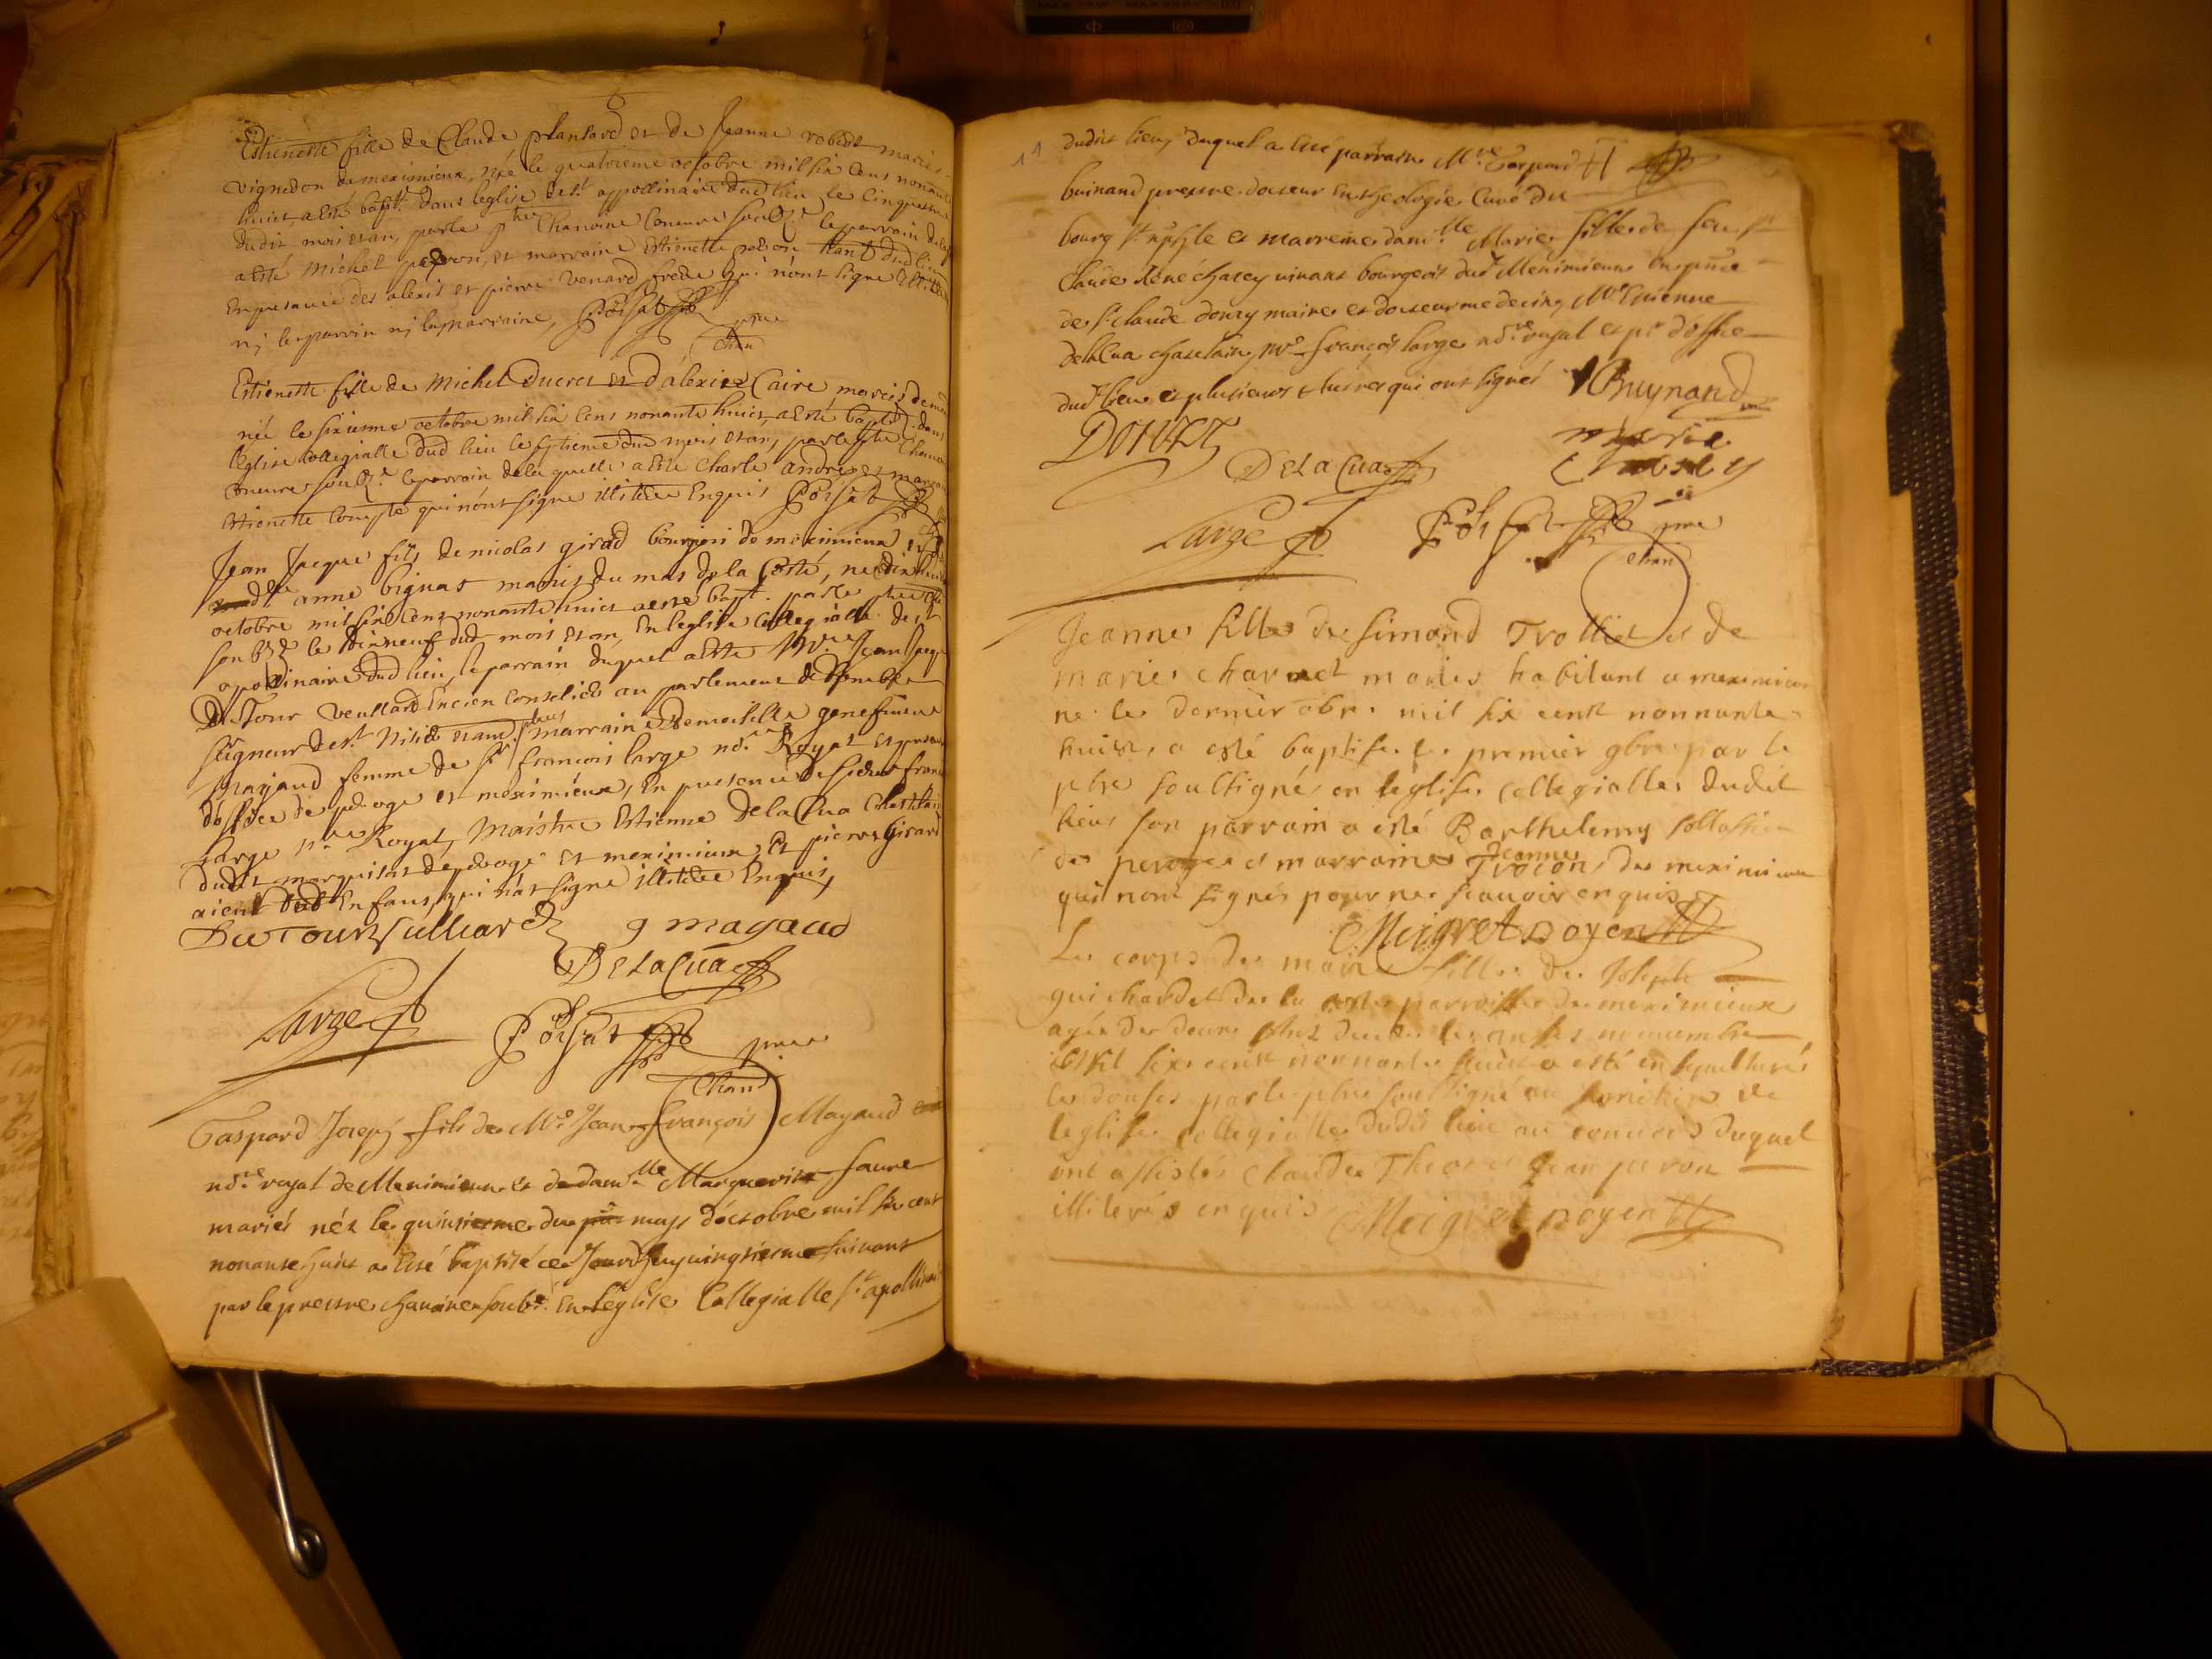 Estienette fille de Claude plantard et de Jeanne robert mariés
vigneron de meximieux, née le quatrieme octobre mil six cens nonante
huict, a esté bapt. dans leglise de st appollinaire dud lieu le cinquiesme
dudit mois et an, par le ptre Chanoine Coneure soubz.e le parrain de laq
a esté Michel peron, et marraine Estienette tant dud lieu
En presence des alexis et pierre venard frere qui n'ont signe
ny le parrin ny la marraine, Poisat ptre
Chan
Estienette fille de Michel Ducret et d'alexise Caire mariés de
née le sixiesme octobre mil six cens nonante huict, a esté bapt. dans
leglise collegialle dud lieu le septieme dud mois et an, par le ptre Chanoi
Coneure soubz.e le parrain de la quelle a esté Charle andré et marrai
Estienette Compte qui n'ont signe illitere Enquis Poisat
Jean Jacque fils de nicolas girad bourgeois de meximieux et
dlle anne bignat mariés du mas de la Costé, né dixhui
octobre mil six cens nonante huict a esté bapt. par le ptre
soubz.é le dixneuf dud mois et an, En leglise collegialle de st
apollinaire dud lieu, le parrain duquel a esté Mr. Jean Jacque
Du Tour Veullard Encien Conseiller au parlement de Dombes
seigneur de st. et marraine Demoiselle genefieve
Magaud femme de sr francois large not.re Royal et procur
d'office de peroge et meximieux, En presence de sieur franc
Large n.re Royal, Maistre Estienne De la Cua Chastelai
dudit marquisat de peroge et meximieux, et pierre girard
aieul dud Enfans, qui n'at signe illitere Enquis,
Du Tour Vulliard g magaud
De la Cua
Large Poisat ptre
Chan
Gaspard Joseph fils de Mr. Jean François Magaud
not.re royal de Meximieux et de dam.lle Marguerite faure
mariés néz le quinsiesme du moys d'octobre mil six cent
nonante huict a esté baptisé ce Jourdhuy vingtiesme suivant
par le prestre chanoine soubs.é En leglise Collegialle st apollinai
11 dudit lieu, duquel a esté parrain Mre Gaspard
buinand prestre docteur en theologie Curé du
bourg st Christophle et marreine dam.lle Marie fille de feu sr
Claude René chasey vivant bourgeois dud Meximieux en pnce
de sr claude donzy maire et docteur medecin, Me Etienne
delaCua chatelain, me françois large not.re royal et pr d'office
dud lieu et plusieurs autres qui ont signés Buynand
DONZY marie
De la Cua Chasey
Large Poisat ptre
Chan
Jeanne fille de Simond Trollier et de
marie charvet mariés habitant a meximieux
né le dernier 8bre mil six cent nonnante
huict, a esté baptisé le premier 9bre par le
ptre soussigné en leglise collegialle dudit
lieu son parrain a esté Barthelemy
de peroge et marraine Jeanne Trocon de meximieux
qui n'ont signés pour ne scavoir enquis
C. Meigret Doyen
Le corps de marie fille de Joseph
guichardet de la coste parroisse de meximieux
agée de deux
mil six cent nonnante huict a esté ensepulturé
le douse par le ptre soussigné au simetiere de
leglise collegialle dudit lieu au convois duquel
ont assistés Claude et Jean peron
illiterés enquis C. Meigret Doyen